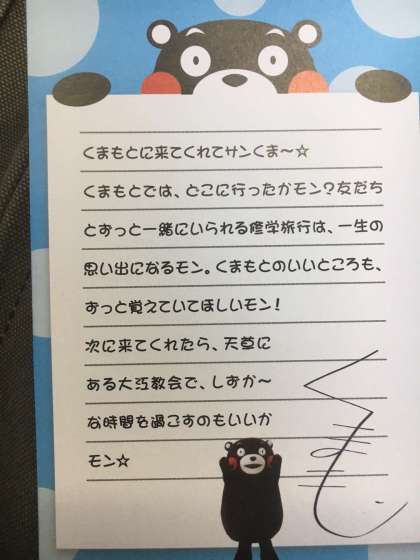 くまもとに来てくれてサンくま～☆
くまもとでは、どこに行ったかモン？友だち
とずっと一緒にいられる修学旅行は、一生の
思い出になるモン。くまもとのいいところも、
ずっと覚えていてほしいモン！
次に来てくれたら、天草に
ある大江教会で、しずか～
な時間を過ごすのもいいか
モン☆
くまモン